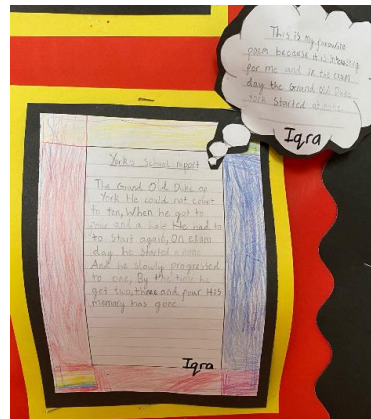 This is my favourite
poem because it is intresting
for me and in his exam
day the Grand old Duke
York Started at none.
Iqra
York's School report
The Grand Old Duke of
York He could not count
to ten, When he got to
four and a half He had to
to start again, On exam
day he started a none
And he slowly progressed
to one, By the time he
got two, three and four His
memory has gone
Iqra